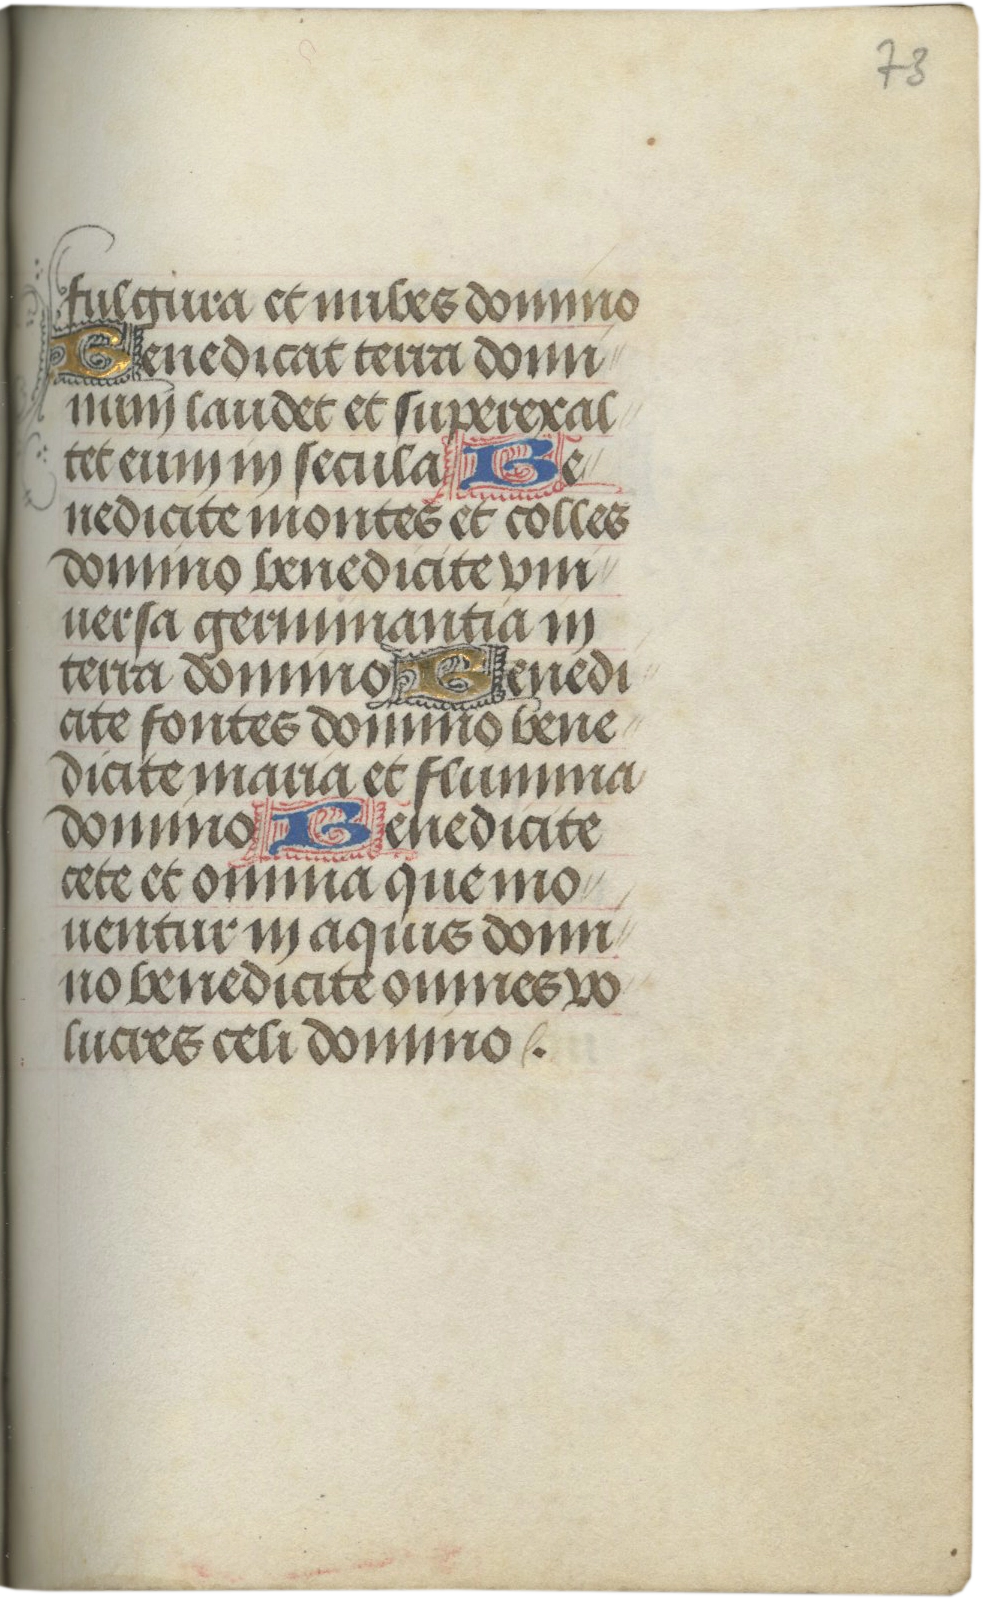 73
fulgura et nubes domino
Benedicat terra domi
num laudet et superexal
tet eum in secula Be
nedicite montes et colles
domino benedicite vni
uersa germinantia in
terra domino Benedi
cite fontes domino bene
dicite maria et flumina
domino Benedicite
cete et omnia que mo
uentur in aquis domi
no benedicite omnes vo
lucres celi domino